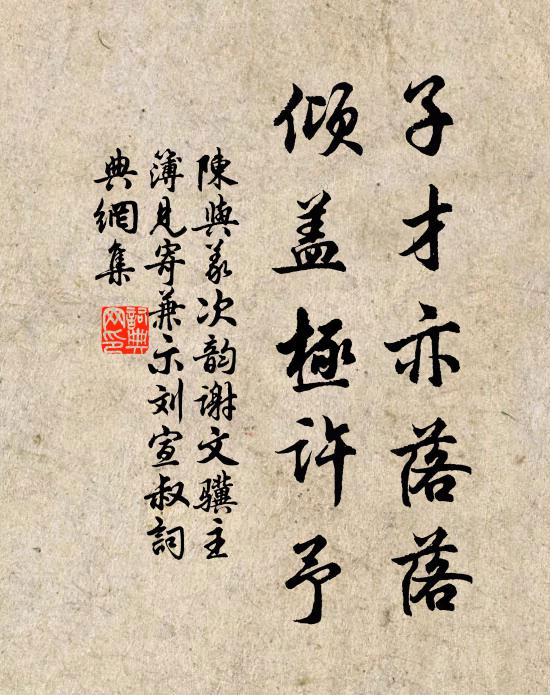 子才亦落落
倾盖極许予
陳與義次韵谢文骥主
簿見寄兼示刘宣叔詞
典網集
詞典網印